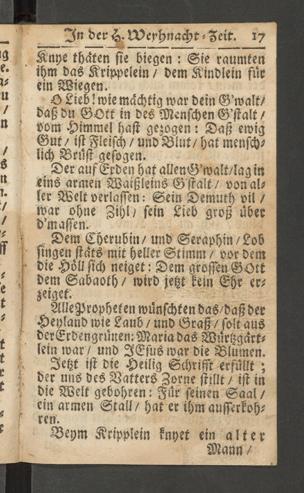 In der H. Weyhnacht-Zeit. 17
Knye thäten sie biegen : Sie raumten
ihm das Krippelein / dem Kindlein für
ein Wiegen.
O Lieb! wie mächtig war dein G'walt /
daß du GOtt in des Menschen G'stalt /
vom Himmel hast gezogen : Daß ewig
Gut / ist Fleisch / und Blut / hat mensch-
lich Brüst gesogen.
Der auf Erden hat allen G'walt / lag in
eins armen Waißleins Gstalt / von al-
ler Welt verlassen : Sein Demuth vil /
war ohne Zihl / sein Lieb groß über
d'massen.
Dem Cherubin / und Seraphin / Lob
singen stäts mit heller Stimm / vor dem
die Höll sich neiget : Dem grossen GOtt
dem Sabaoth / wird jetzt kein Ehr er-
zeiget.
Alle Propheten wünschten das / daß der
Heyland wie Laub / und Graß / solt aus
der Erden grünen: Maria das Würtzgärt-
lein war / und JEsus war die Blumen.
Jetzt ist die Heilig Schrifft erfüllt ;
der uns des Vatters Zorne stillt / ist in
die Welt gebohren : Für seinen Saal /
ein armen Stall / hat er ihm ausserkoh-
ren.
Beym Kripplein knyet ein alter
Mann /